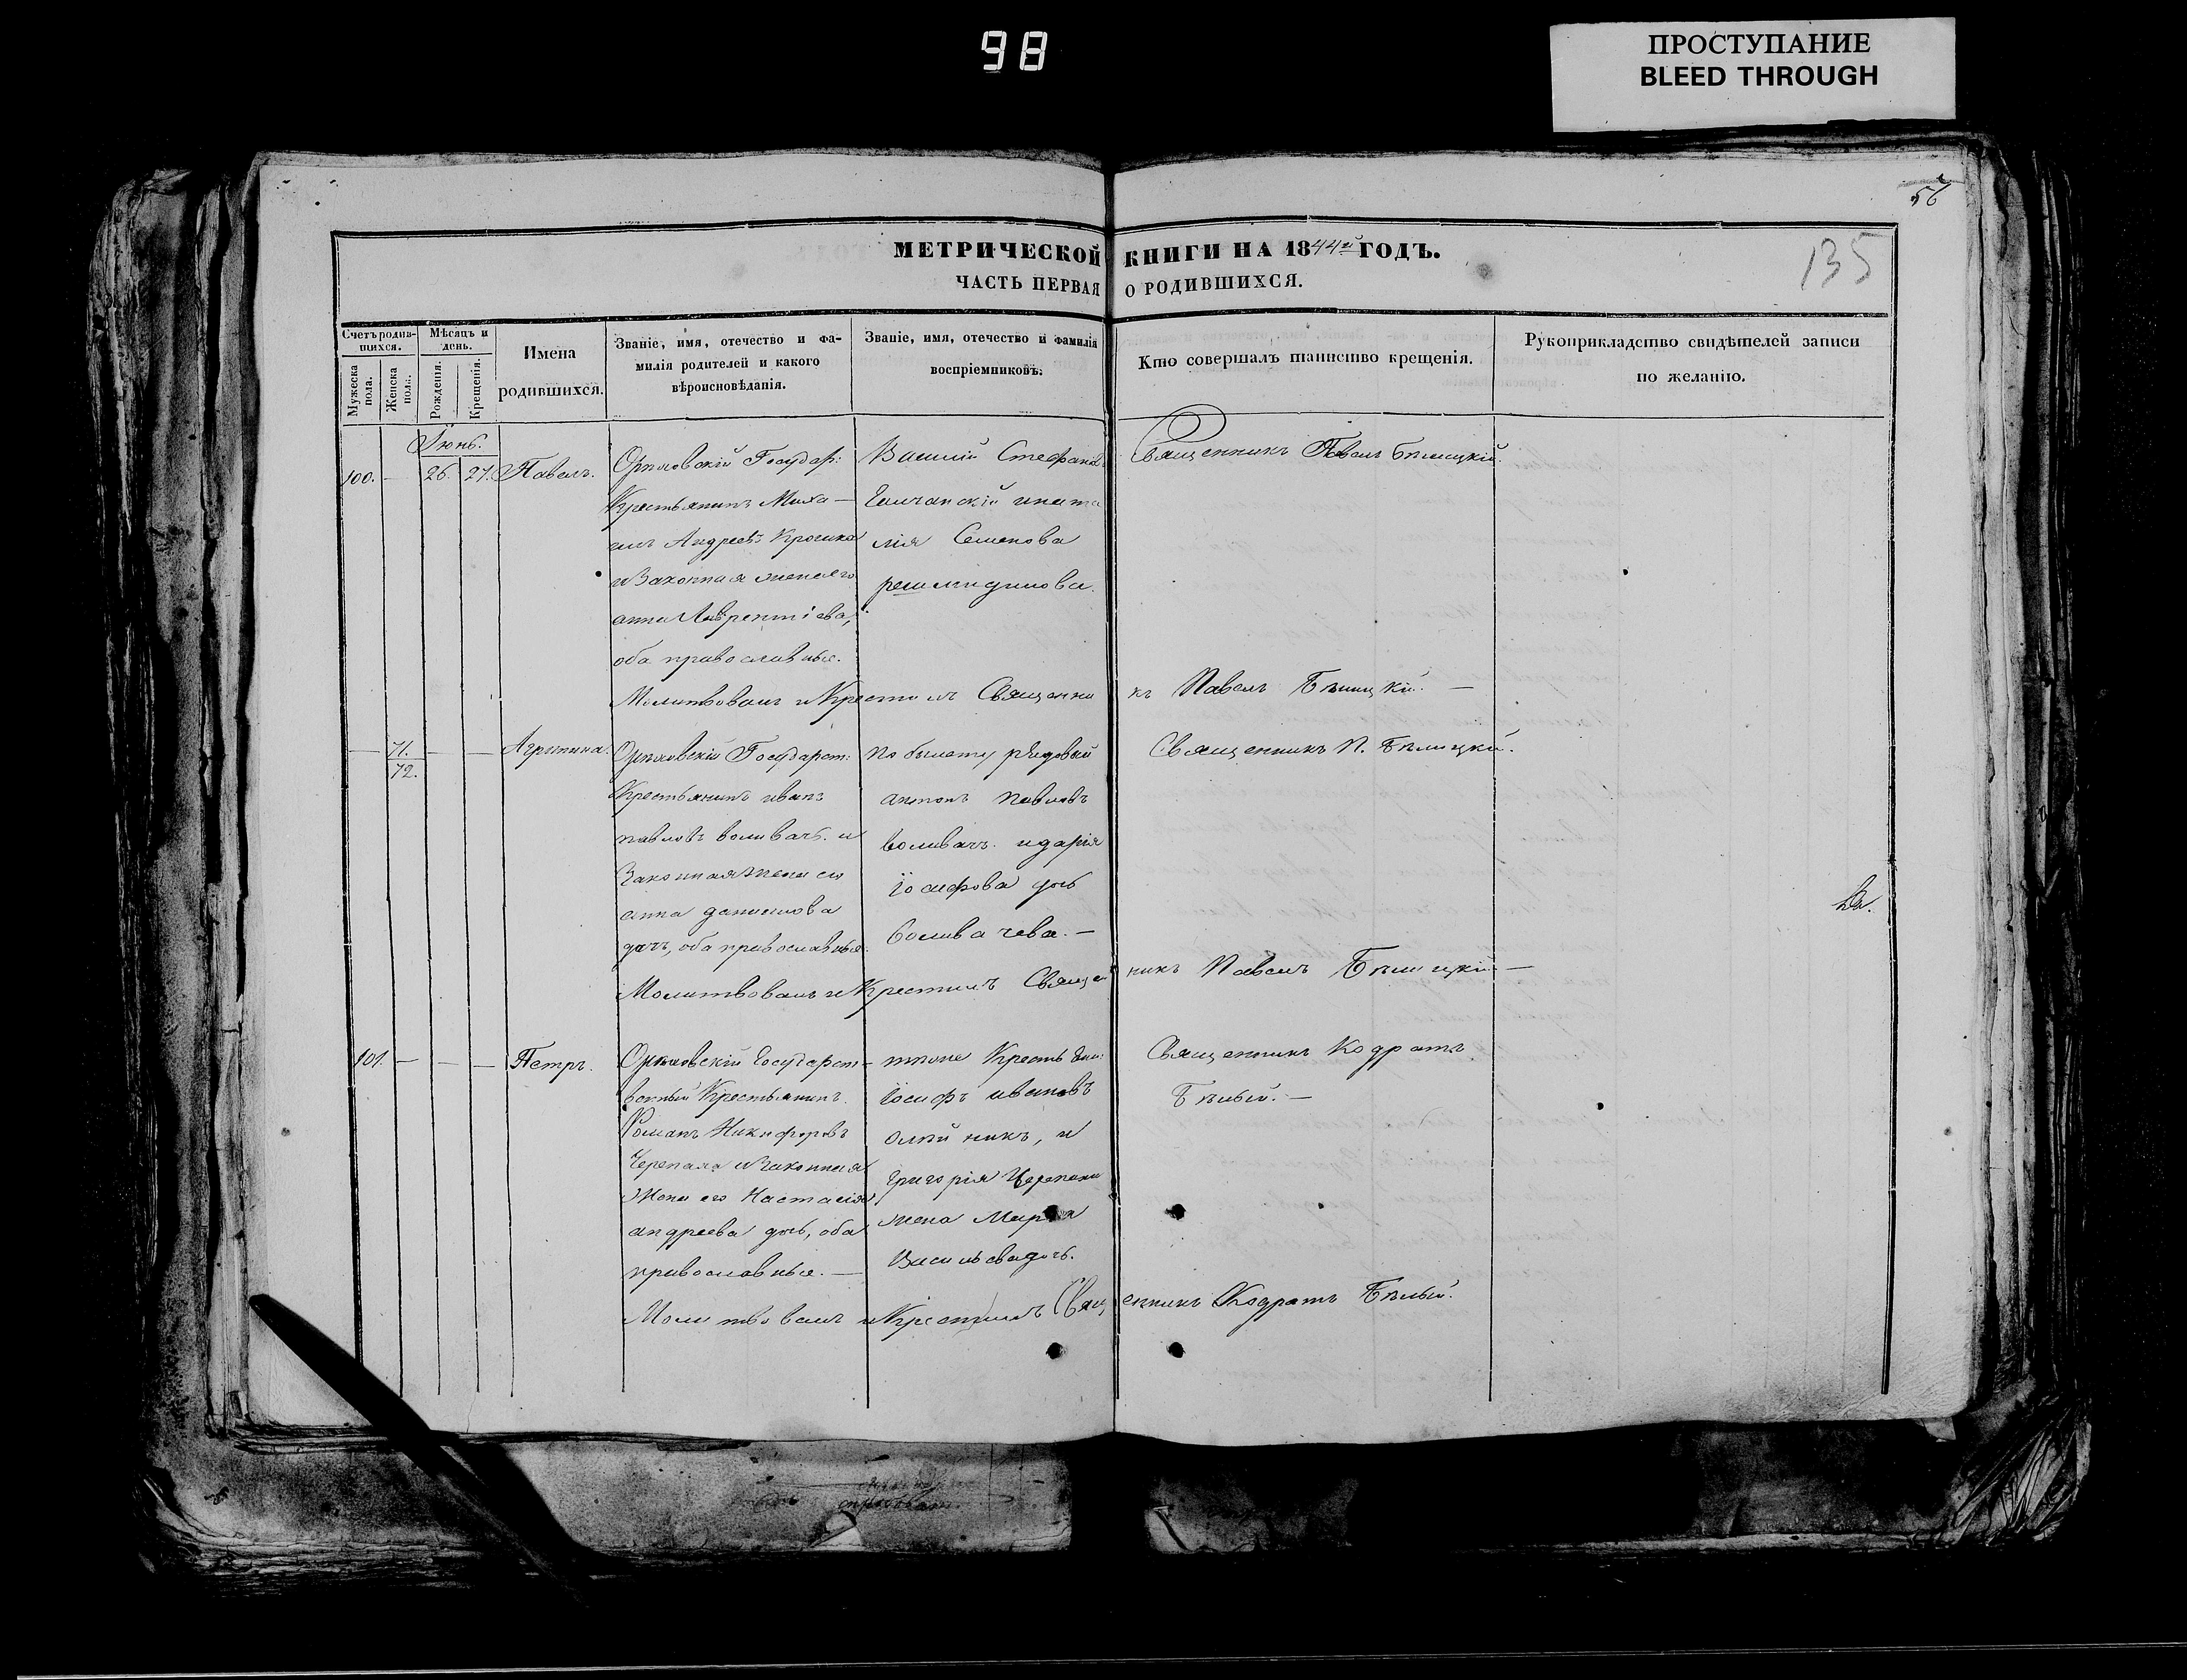 98
ПРОСТУПАНИЕ
BLEED THROUGH
56
135
МЕТРИЧЕСКОЙ КНИГИ НА 1844й ГОДЪ.
ЧАСТЬ ПЕРВАЯ О РОДИВШИХСЯ.
Счетъ родив-
шихся.
Мужеска пола.
Женска пола.
Мѣсяцъ и
день.
Рожденія.
Крещенія.
Имена
родившихся.
Званіе, имя, отечество и фа-
милія родителей и какого
вѣроисповѣданія.
Званіе, имя, отечество и фамилія
воспріемниковъ.
Кто совершалъ таинство крещенія.
Рукоприкладство свидѣтелей записи
по желанію.
Іюнь.
100. — 26. 27. Павелъ.
Орѣховскій Государ:
Крестьянинъ Миха—
илъ Андреевъ
и Законная жена его
анна Лаврентіева,
оба православные.
Василій Стефановъ
Семенова
Священникъ Павелъ Бѣлицкій.
Молитвовалъ и Крестилъ Священникъ Павелъ Бѣлицкій. —
— 71. — — Агрипина.
72.
Орѣховскій Государст:
Крестьянинъ иванъ
павловъ воливачъ. и
Законная жена его
анна данилова
дочь, оба православные.
По билету рядовой
антонъ павловъ
воливачъ. и дарія
іосифова дочь
воливачева. —
Священникъ П. Бѣлицкій.
Молитвовалъ и Крестилъ Священникъ Павелъ Бѣлицкій —
101. — — — Петръ.
Орѣховскій Государст-
венный Крестьянинъ.
Романъ Никифоровъ
Черепаха и Законная
Жена его Настасія
андреева дочь, оба
православные. —
іосифъ ивановъ
олѣйникъ, и
григорія Черепахи
жена Марія
Васильева дочь.
Священникъ Кодратъ
Бѣлый. —
Молитвовалъ и Крестилъ Священникъ Кодратъ Бѣлый.